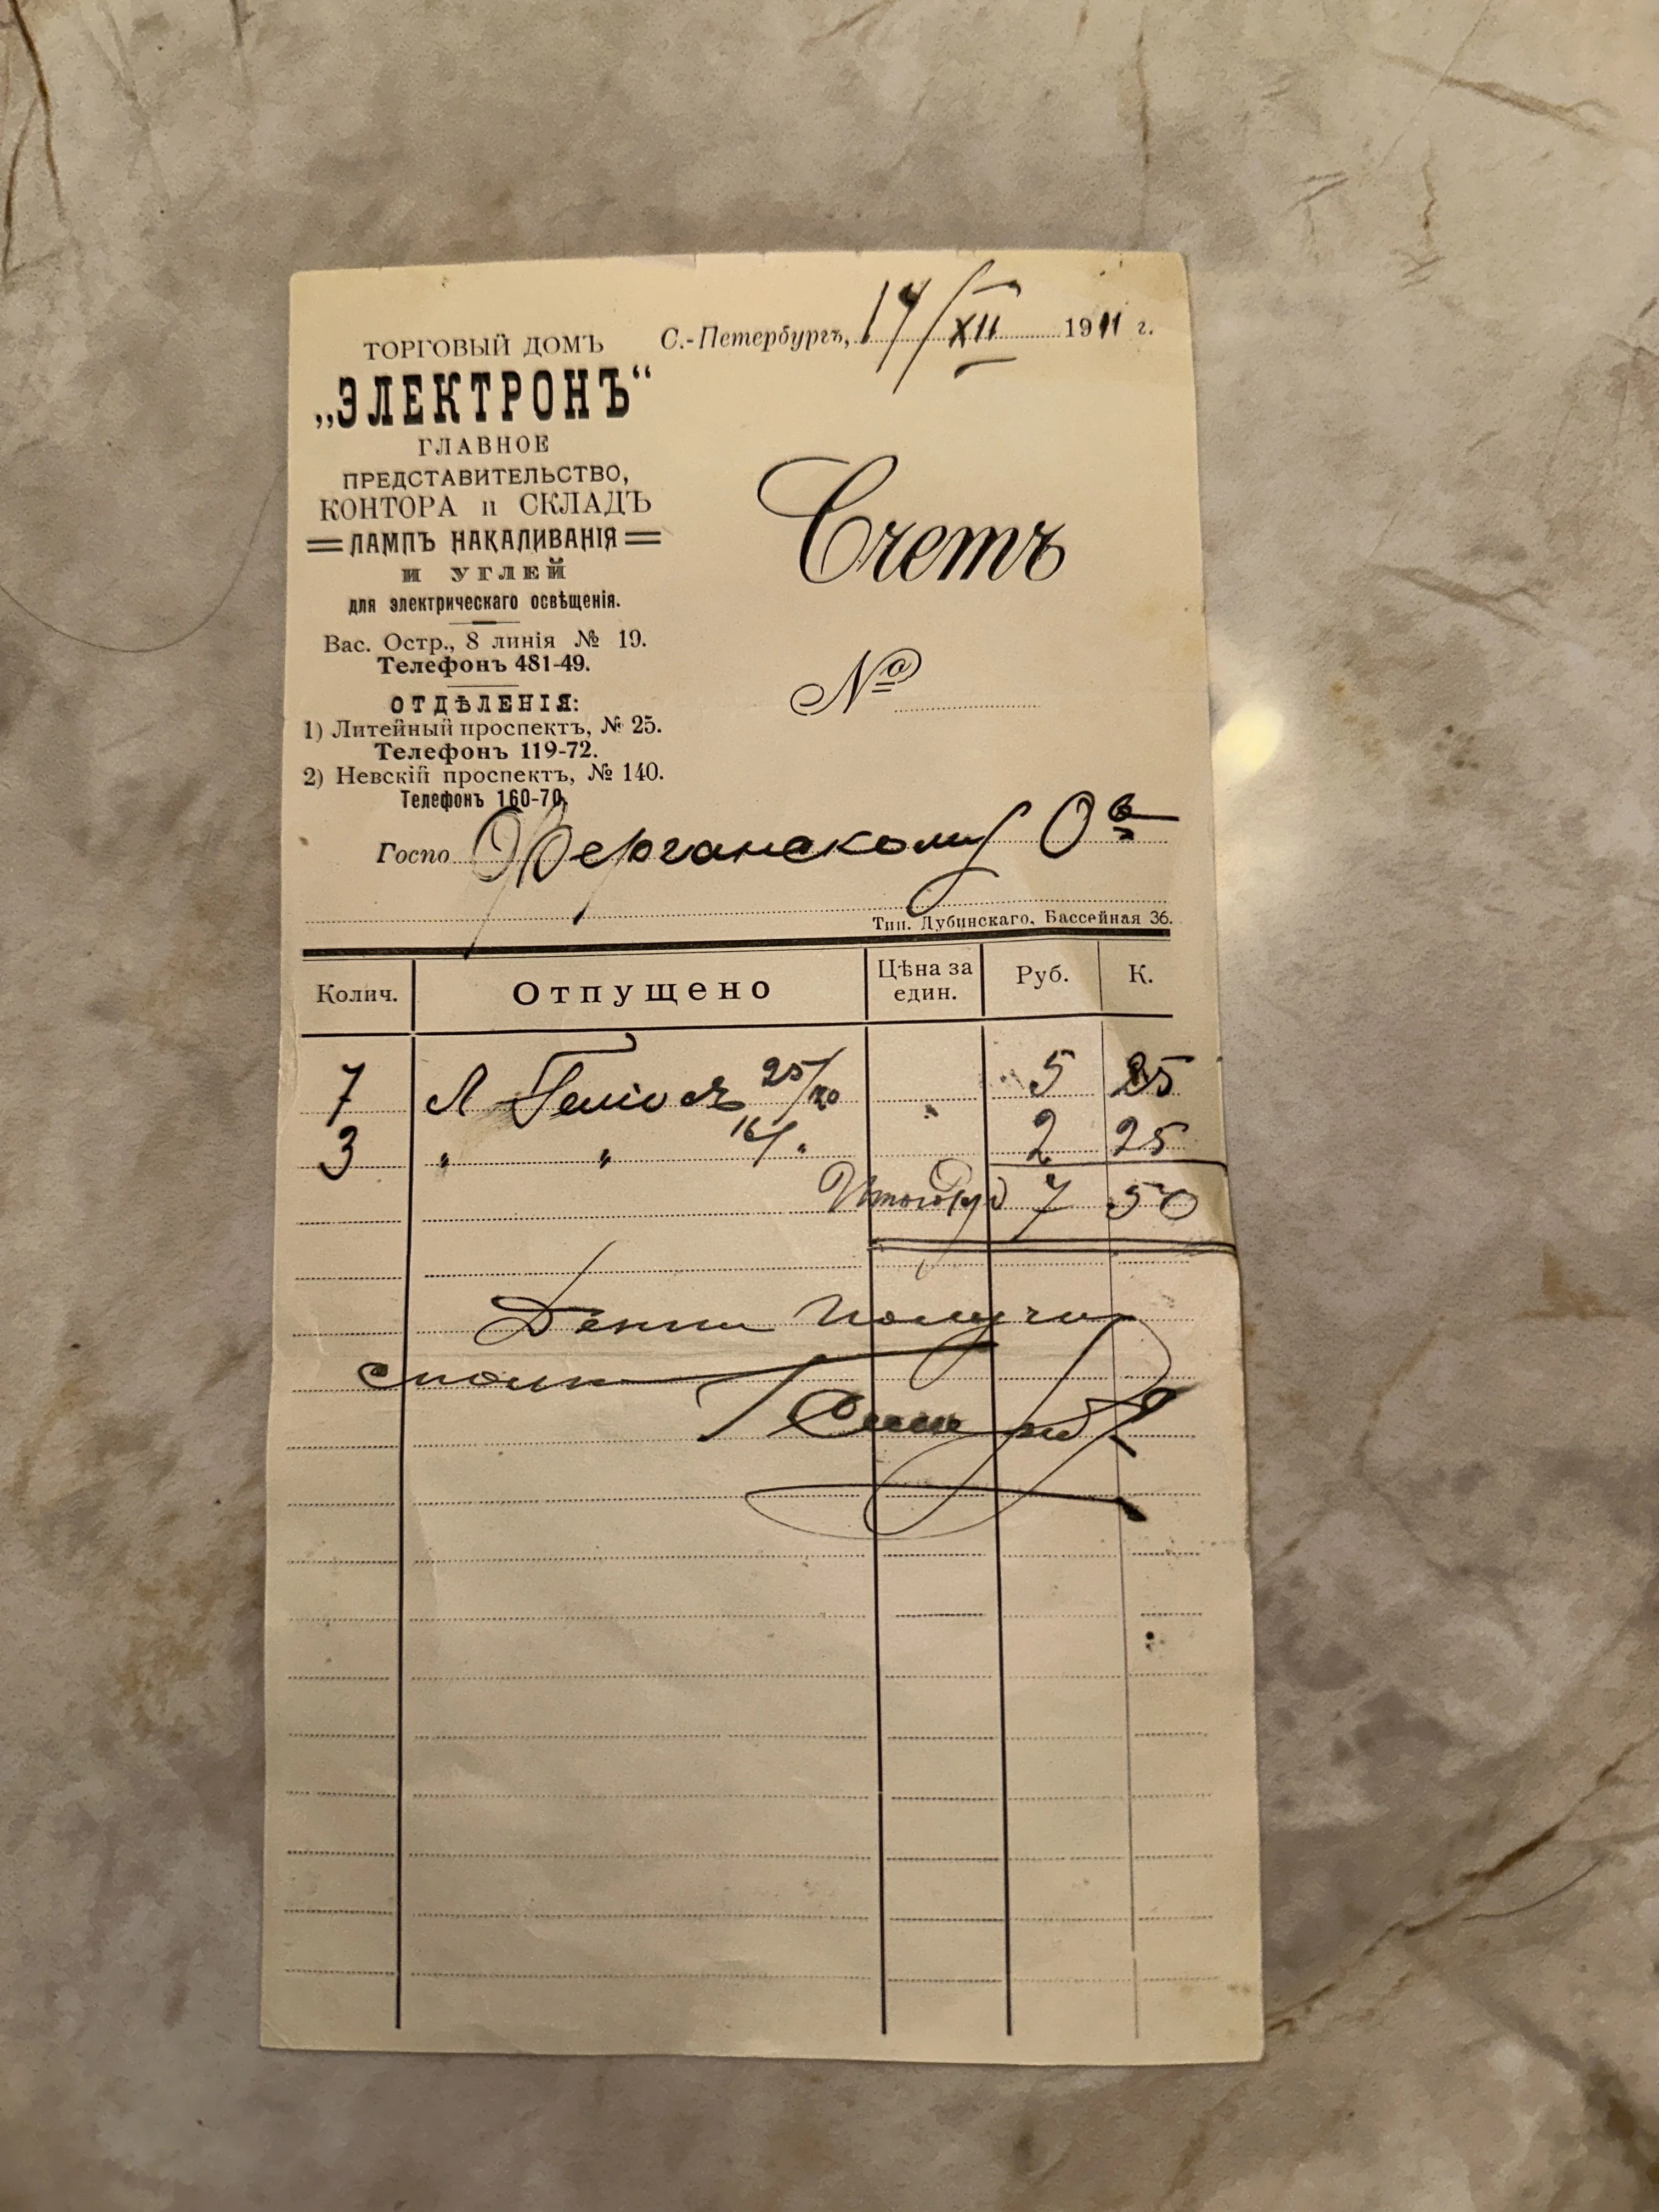 С.-Петербургъ, 14/XII 1911 г.
ТОРГОВЫЙ ДОМЪ
„ЭЛЕКТРОНЪ“
ГЛАВНОЕ
ПРЕДСТАВИТЕЛЬСТВО,
КОНТОРА и СКЛАДЪ
ЛАМПЪ НАКАЛИВАНІЯ
И УГЛЕЙ
для электрическаго освѣщенія.
Вас. Остр., 8 линія № 19.
Телефонъ 481-49.
ОТДѢЛЕНІЯ:
1) Литейный проспектъ, № 25.
Телефонъ 119-72.
2) Невскій проспектъ, № 140.
Телефонъ 160-70.
Счетъ
№
Госпо Ферганскому О-в
Тип. Дубинскаго, Бассейная 36.
Колич. Отпущено Цѣна за един. Руб. К.
7 Л 25/ 5 25
3 " " 16/" 2 25
Итого Руб 7 50
Деньги получи
сполна